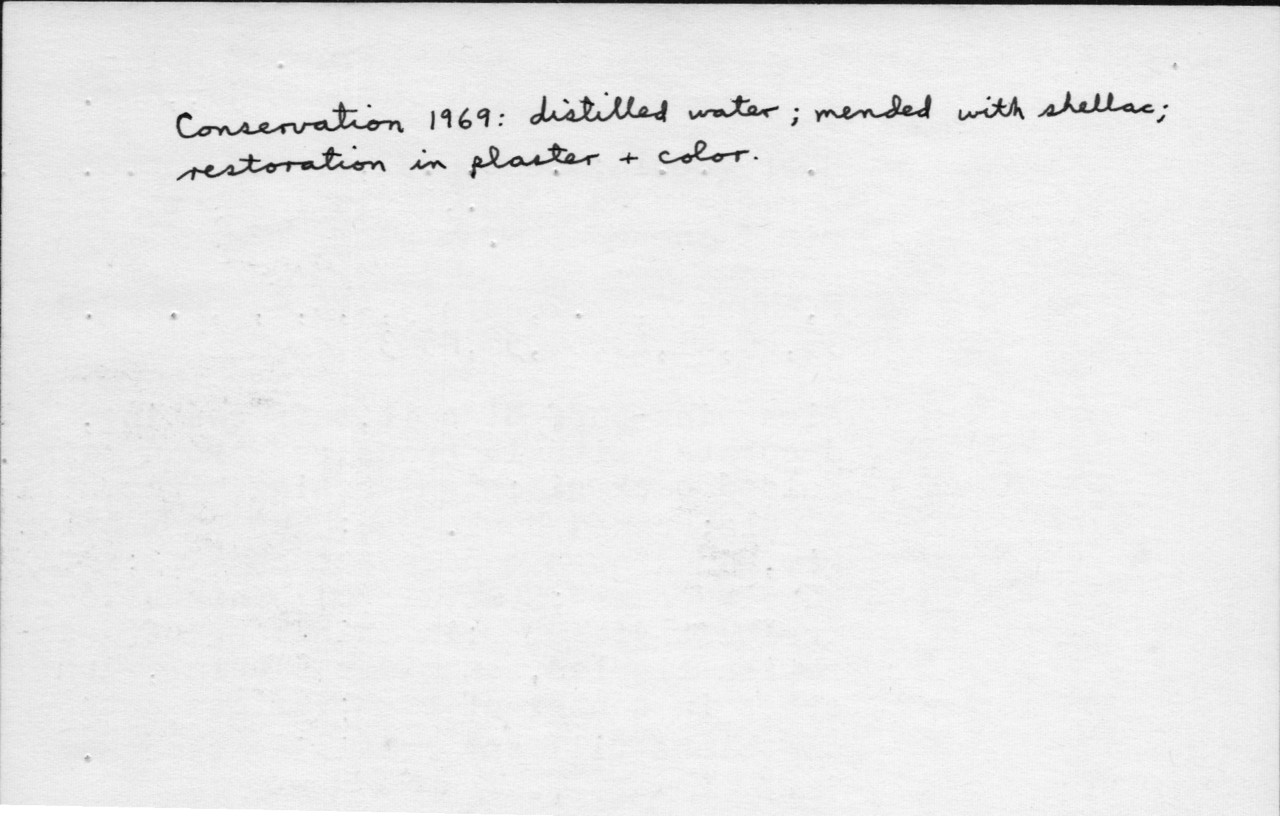 Conservation 1969: distilled water; mended with shellac;
restoration in plaster + color.